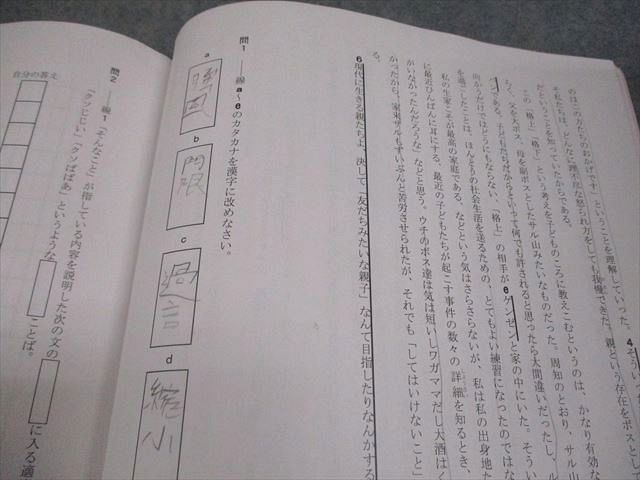 4そうい
のはこの方たちのおかげです」ということを理解していった。
それにどんなに理不尽な怒られ方をしても我慢できた。親という存在をボスとして
だということを知っていたからである。
この「格上」「格上」という考えを子どものころに教えこむというのは、かなり有効な
らく、父を大ボス、母を副ボスとしたサル山みたいなものだった。周知のとおり、サル山
ンである。子どもだちだからといって何でも許されると思ったら大間違いだったし、ル
向かうだけではどうにもならない、「格上」の相手がeゲンゼンと家の中にいた。そうい
を過ごしたことは、ほんとうの社会生活を送るための、とてもよい練習になったのではな
私の生家こそが最高の家庭である、などという気はさらさらないが、私は私の出身地た
に最近ひんぱんに耳にする、最近の子どもたちが起こす事件の数々の詳細を知るとき、
がいなかったんだろうな」などと思う。ウチのボス達は気は短いしワガママだし大酒はく
かったから、家来ザルもずいぶんと苦労させられたが、それでも「してはいけないこと」
る。
6現代に生きる親たちよ、決して「友だちみたいな親子」なんて目指したりなんかする
問1 ――線a〜eのカタカナを漢字に改めなさい。
a
b 門限
c 過言
d 縮小
問2 ――線1「そんなこと」が指している内容を説明した次の文の
に入る適
「クソじじい」「クソばばあ」というような
ことば。
自分の答え